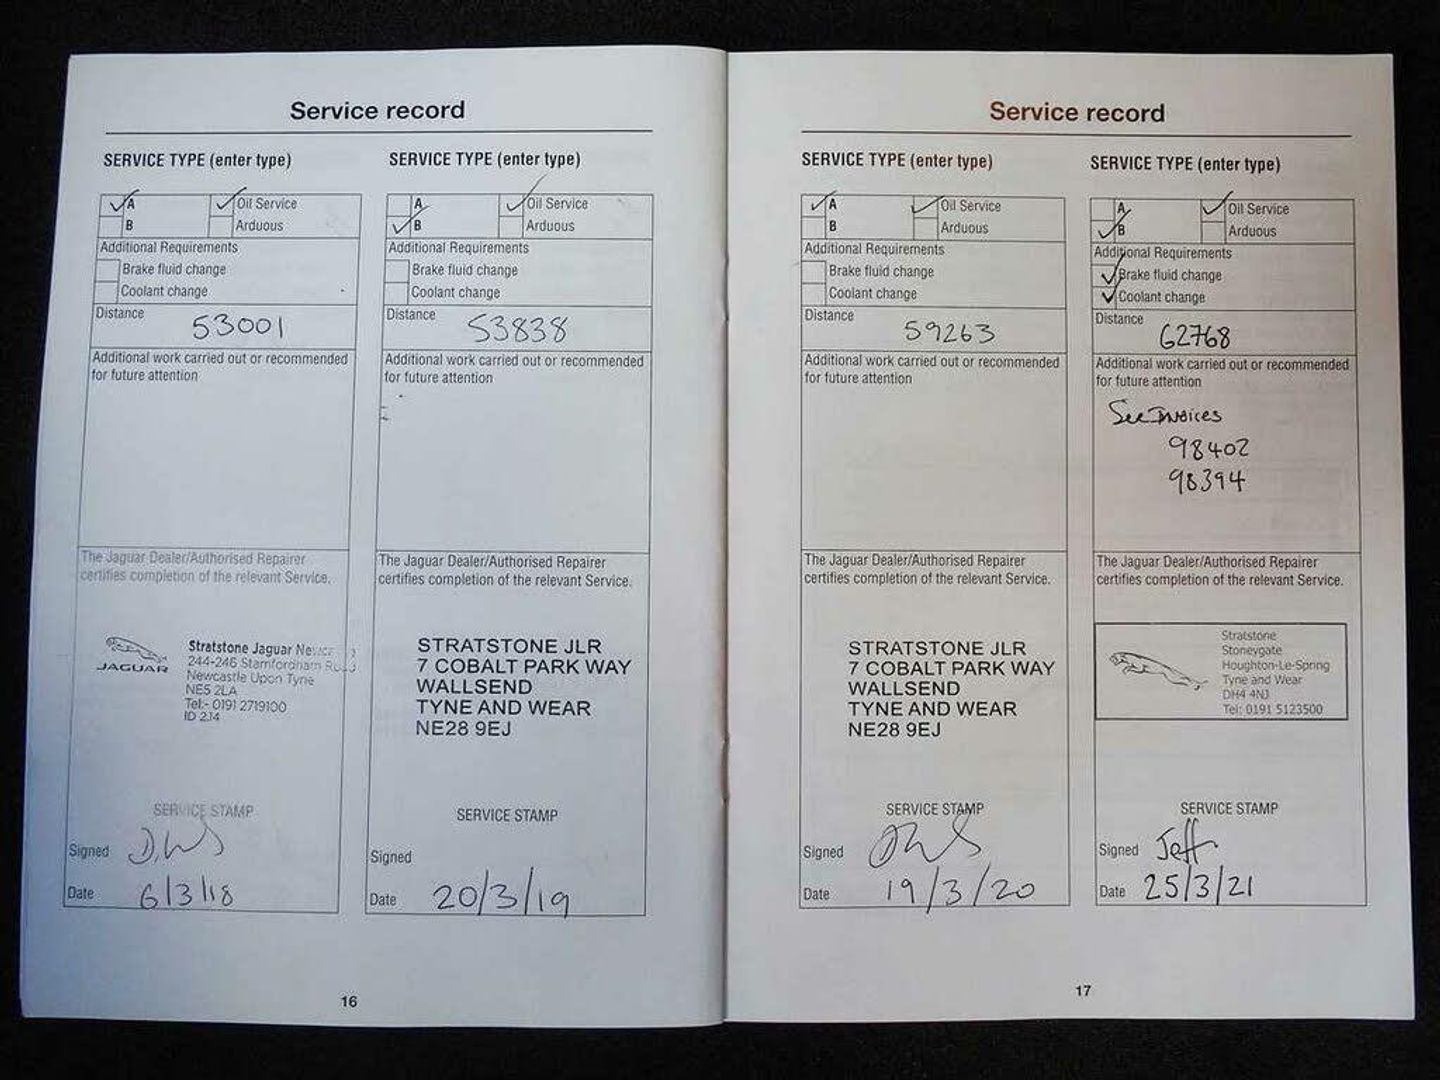 Service record
SERVICE TYPE (enter type)
A Oil Service
B Arduous
Additional Requirements
Brake fluid change
Coolant change
Distance
53001
Additional work carried out or recommended
for future attention
The Jaguar Dealer/Authorised Repairer
certifies completion of the relevant Service.
JAGUAR
Stratstone Jaguar
244-246 Stamfordham
Newcastle Upon Tyne
NE5 2LA
Tel:- 0191 2719100
ID 2J4
SERVICE STAMP
Signed
Date 6/3/18
SERVICE TYPE (enter type)
A Oil Service
B Arduous
Additional Requirements
Brake fluid change
Coolant change
Distance
53838
Additional work carried out or recommended
for future attention
The Jaguar Dealer/Authorised Repairer
certifies completion of the relevant Service.
STRATSTONE JLR
7 COBALT PARK WAY
WALLSEND
TYNE AND WEAR
NE28 9EJ
SERVICE STAMP
Signed
Date 20/3/19
16
Service record
SERVICE TYPE (enter type)
A Oil Service
B Arduous
Additional Requirements
Brake fluid change
Coolant change
Distance
59263
Additional work carried out or recommended
for future attention
The Jaguar Dealer/Authorised Repairer
certifies completion of the relevant Service.
STRATSTONE JLR
7 COBALT PARK WAY
WALLSEND
TYNE AND WEAR
NE28 9EJ
SERVICE STAMP
Signed
Date 19/3/20
SERVICE TYPE (enter type)
A Oil Service
B Arduous
Additional Requirements
Brake fluid change
Coolant change
Distance
62768
Additional work carried out or recommended
for future attention
See Invoices
98402
98394
The Jaguar Dealer/Authorised Repairer
certifies completion of the relevant Service.
Stratstone
Stoneygate
Houghton-Le-Spring
Tyne and Wear
DH4 4NJ
Tel: 0191 5123500
SERVICE STAMP
Signed Jeff
Date 25/3/21
17